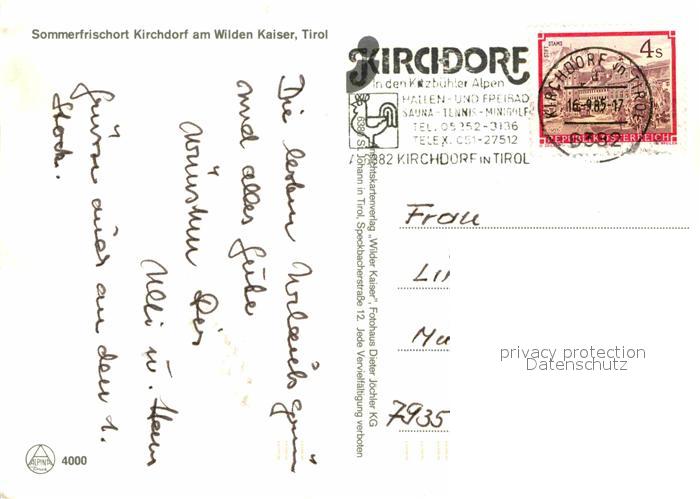 Sommerfrischort Kirchdorf am Wilden Kaiser, Tirol
Die lieben Urlaubsgrüße
und alles Gute
wünschen Dir
Ulli u. Hans
Grüße auch an den 1.
Stock.
ALPINA
4000
Ansichtskartenverlag „Wilder Kaiser", Fotohaus Dieter Jöchler KG
6380 St. Johann in Tirol, Speckbacherstraße 12. Jede Vervielfältigung verboten
KIRCHDORF
in den Kitzbühler Alpen
HALLEN- UND FREIBAD
SAUNA-TENNIS-MINIGOLF
TEL. 05352-3136
TELEX. 051-27512
A 6382 KIRCHDORF IN TIROL
KIRCHDORF in TIROL
16.-9.85-17
6382
STIFT STAMS
4S
REPUBLIK ÖSTERREICH
Frau
7935
privacy protection
Datenschutz